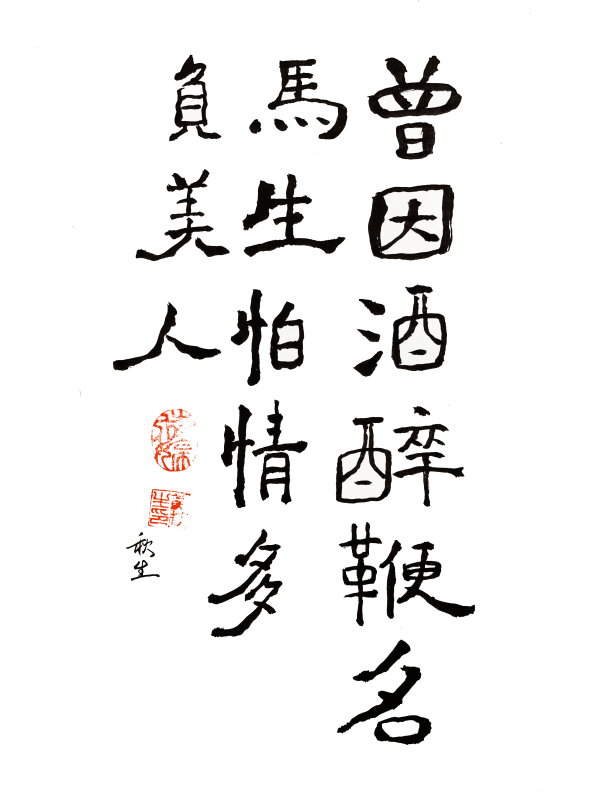 曾因酒醉鞭名
馬生怕情多
負美人
秋生